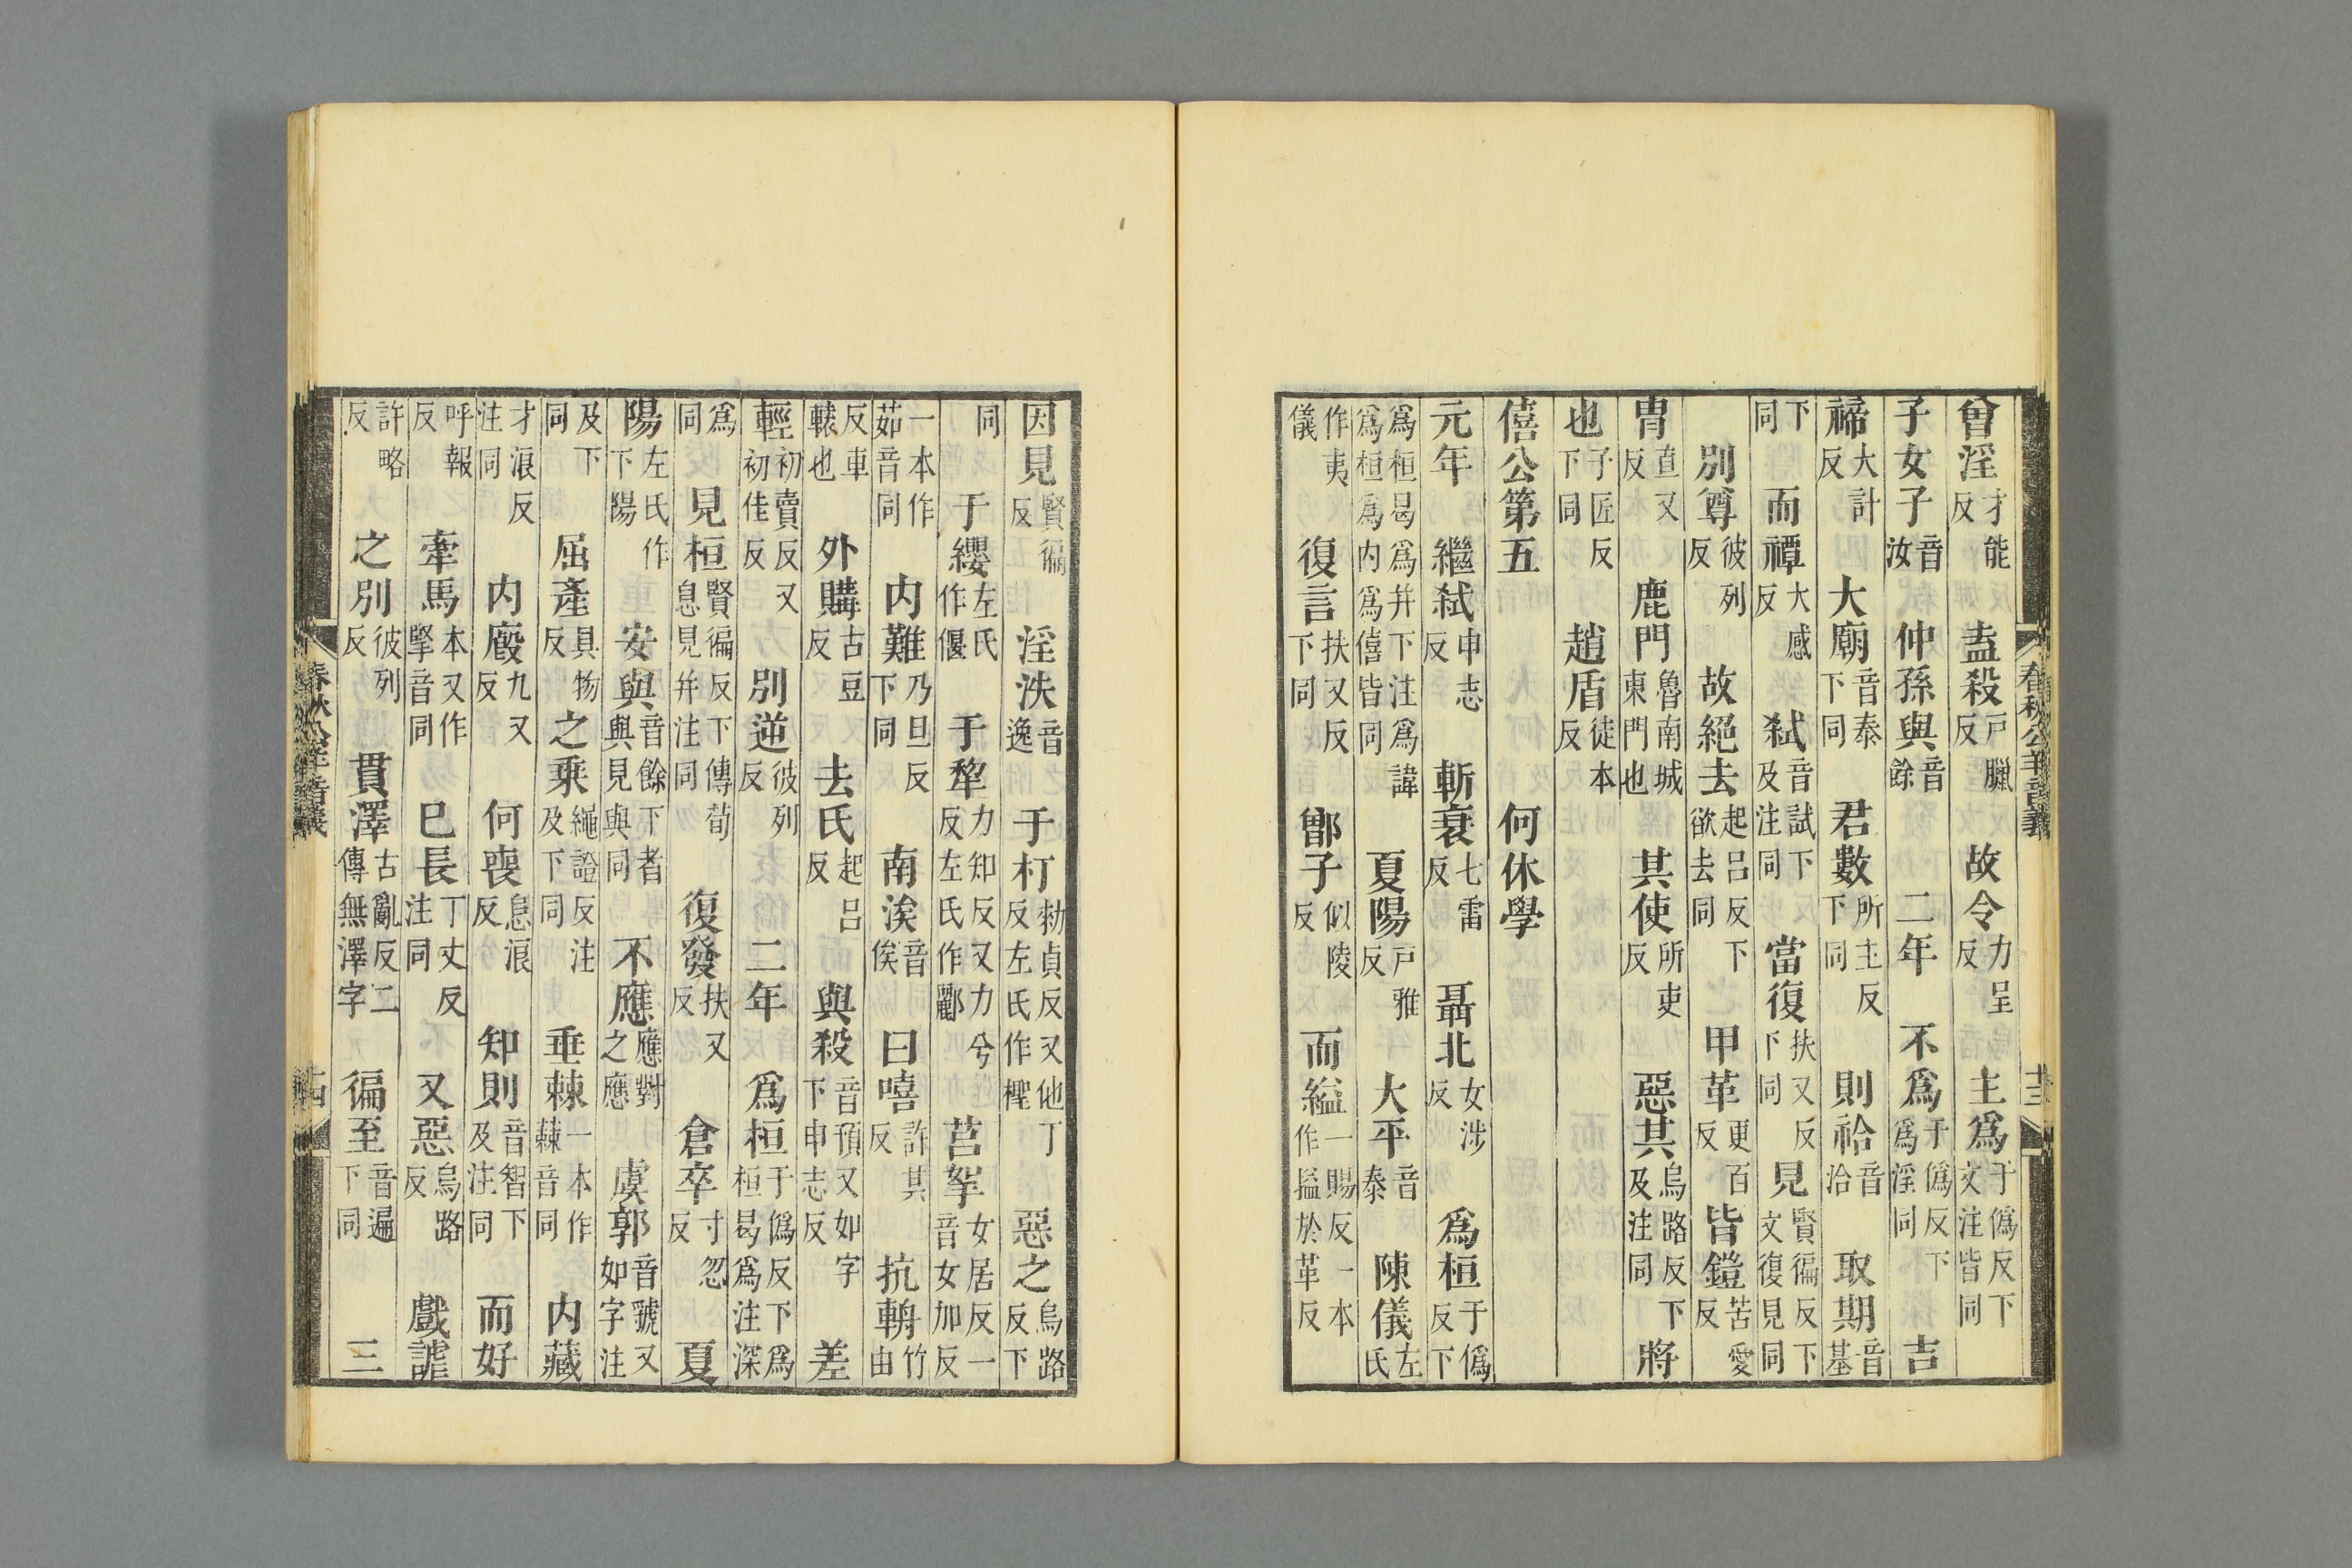 曾淫才能反 盍殺戸臘反 故令力呈反 主爲于僞反下文注皆同
子女子音汝 仲孫與音餘 二年 不爲于僞反下爲淫同 吉
禘大計反 大廟音泰下同 君數所主反下同 則祫音洽 取期音基
下同 而禫大感反 弑音試下及注同 當復扶又反下同 見賢徧反下文復見同
別尊彼列反 故絕去起呂反下欲去同 甲革更百反 皆鎧苦愛反
冑直又反 鹿門魯南城東門也 其使所吏反 惡其烏路反下及注同 將
也子匠反下同 趙盾徒本反
僖公第五 何休學
元年 繼弑申志反 斬衰七雷反 聶北女涉反 爲桓于僞反下
爲桓曷爲并下注爲諱爲桓爲内爲僖皆同 夏陽戸雅反 大平音泰 陳儀左氏
作夷儀 復言扶又反下同 鄫子似陵反 而縊一賜反一本作搤於革反
春秋公羊音義 十三
因見賢徧反 淫泆音逸 于朾勑貞反又他丁反左氏作檉 惡之烏路反下
同 于纓左氏作偃 于犂力知反又力兮反左氏作酈 莒挐女居反一音女加反
一本作茹音同 内難乃旦反下同 南涘音俟 曰嘻許其反 抗輈竹由
反車轅也 外購古豆反 去氏起呂反 與殺音預又如字下申志反 差
輕初賣反又初佳反 別逆彼列反 二年 爲桓于僞反下爲桓曷爲注深
爲同 見桓賢徧反下傳荀息見并注同 復發扶又反 倉卒寸忽反 夏
陽左氏作下陽 安與音餘下者與見與同 不應應對之應 虞郭音虢又如字注
及下同 屈產具物反 之乘繩證反注及下同 垂棘一本作蕀音同 内藏
才浪反注同 内廄九又反 何喪息浪反 知則音智下及注同 而好
呼報反 牽馬本又作掔音同 巳長丁丈反注同 又惡烏路反 戲謔
許略反 之別彼列反 貫澤古亂反二傳無澤字 徧至音遍下同 三
春秋公羊音義 十四